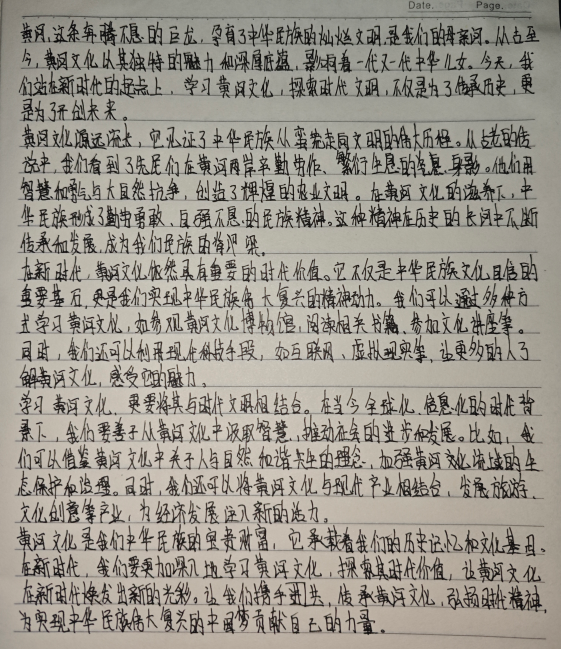 Date. Page.
黄河,这条奔腾不息的巨龙,孕育了中华民族的灿烂文明,是我们的母亲河。从古至
今,黄河文化以其独特的魅力和深厚底蕴,影响着一代又一代中华儿女。今天,我
们站在新时代的起点上,学习黄河文化,探索时代文明,不仅是为了传承历史,更
是为了开创未来。
黄河文化源远流长,它见证了中华民族从蛮荒走向文明的伟大历程。从古老的传
说中,我们看到了先民们在黄河两岸辛勤劳作、繁衍生息的身影。他们用
智慧和勇气与大自然抗争,创造了辉煌的农业文明。在黄河文化的滋养下,中
华民族形成了勤劳勇敢、自强不息的民族精神。这种精神在历史的长河中不断
传承和发展,成为我们民族的脊梁。
在新时代,黄河文化依然具有重要的时代价值。它不仅是中华民族文化自信的
重要基石,更是我们实现中华民族伟大复兴的精神动力。我们可以通过多种方
式学习黄河文化,如参观黄河文化博物馆,阅读相关书籍、参加文化讲座等。
同时,我们还可以利用现代科技手段,如互联网、虚拟现实等,让更多的人了
解黄河文化,感受它的魅力。
学习黄河文化,更要将其与时代文明相结合。在当今全球化、信息化的时代背
景下,我们要善于从黄河文化中汲取智慧,推动社会的进步和发展。比如,我
们可以借鉴黄河文化中关于人与自然和谐共生的理念,加强黄河文化流域的生
态保护和治理。同时,我们还可以将黄河文化与现代产业相结合,发展旅游、
文化创意等产业,为经济发展注入新的活力。
黄河文化是我们中华民族的宝贵财富,它承载着我们的历史记忆和文化基因。
在新时代,我们要更加深入地学习黄河文化,探索其时代价值,让黄河文化
在新时代焕发出新的光彩。让我们携手共进,传承黄河文化,弘扬时代精神,
为实现中华民族伟大复兴的中国梦贡献自己的力量。